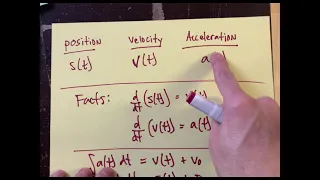 position Velocity Acceleration
s(t) v(t) a
Facts: d/dt (s(t)) =
d/dt (v(t)) = a(t)
∫a(t) dt = v(t) + v₀